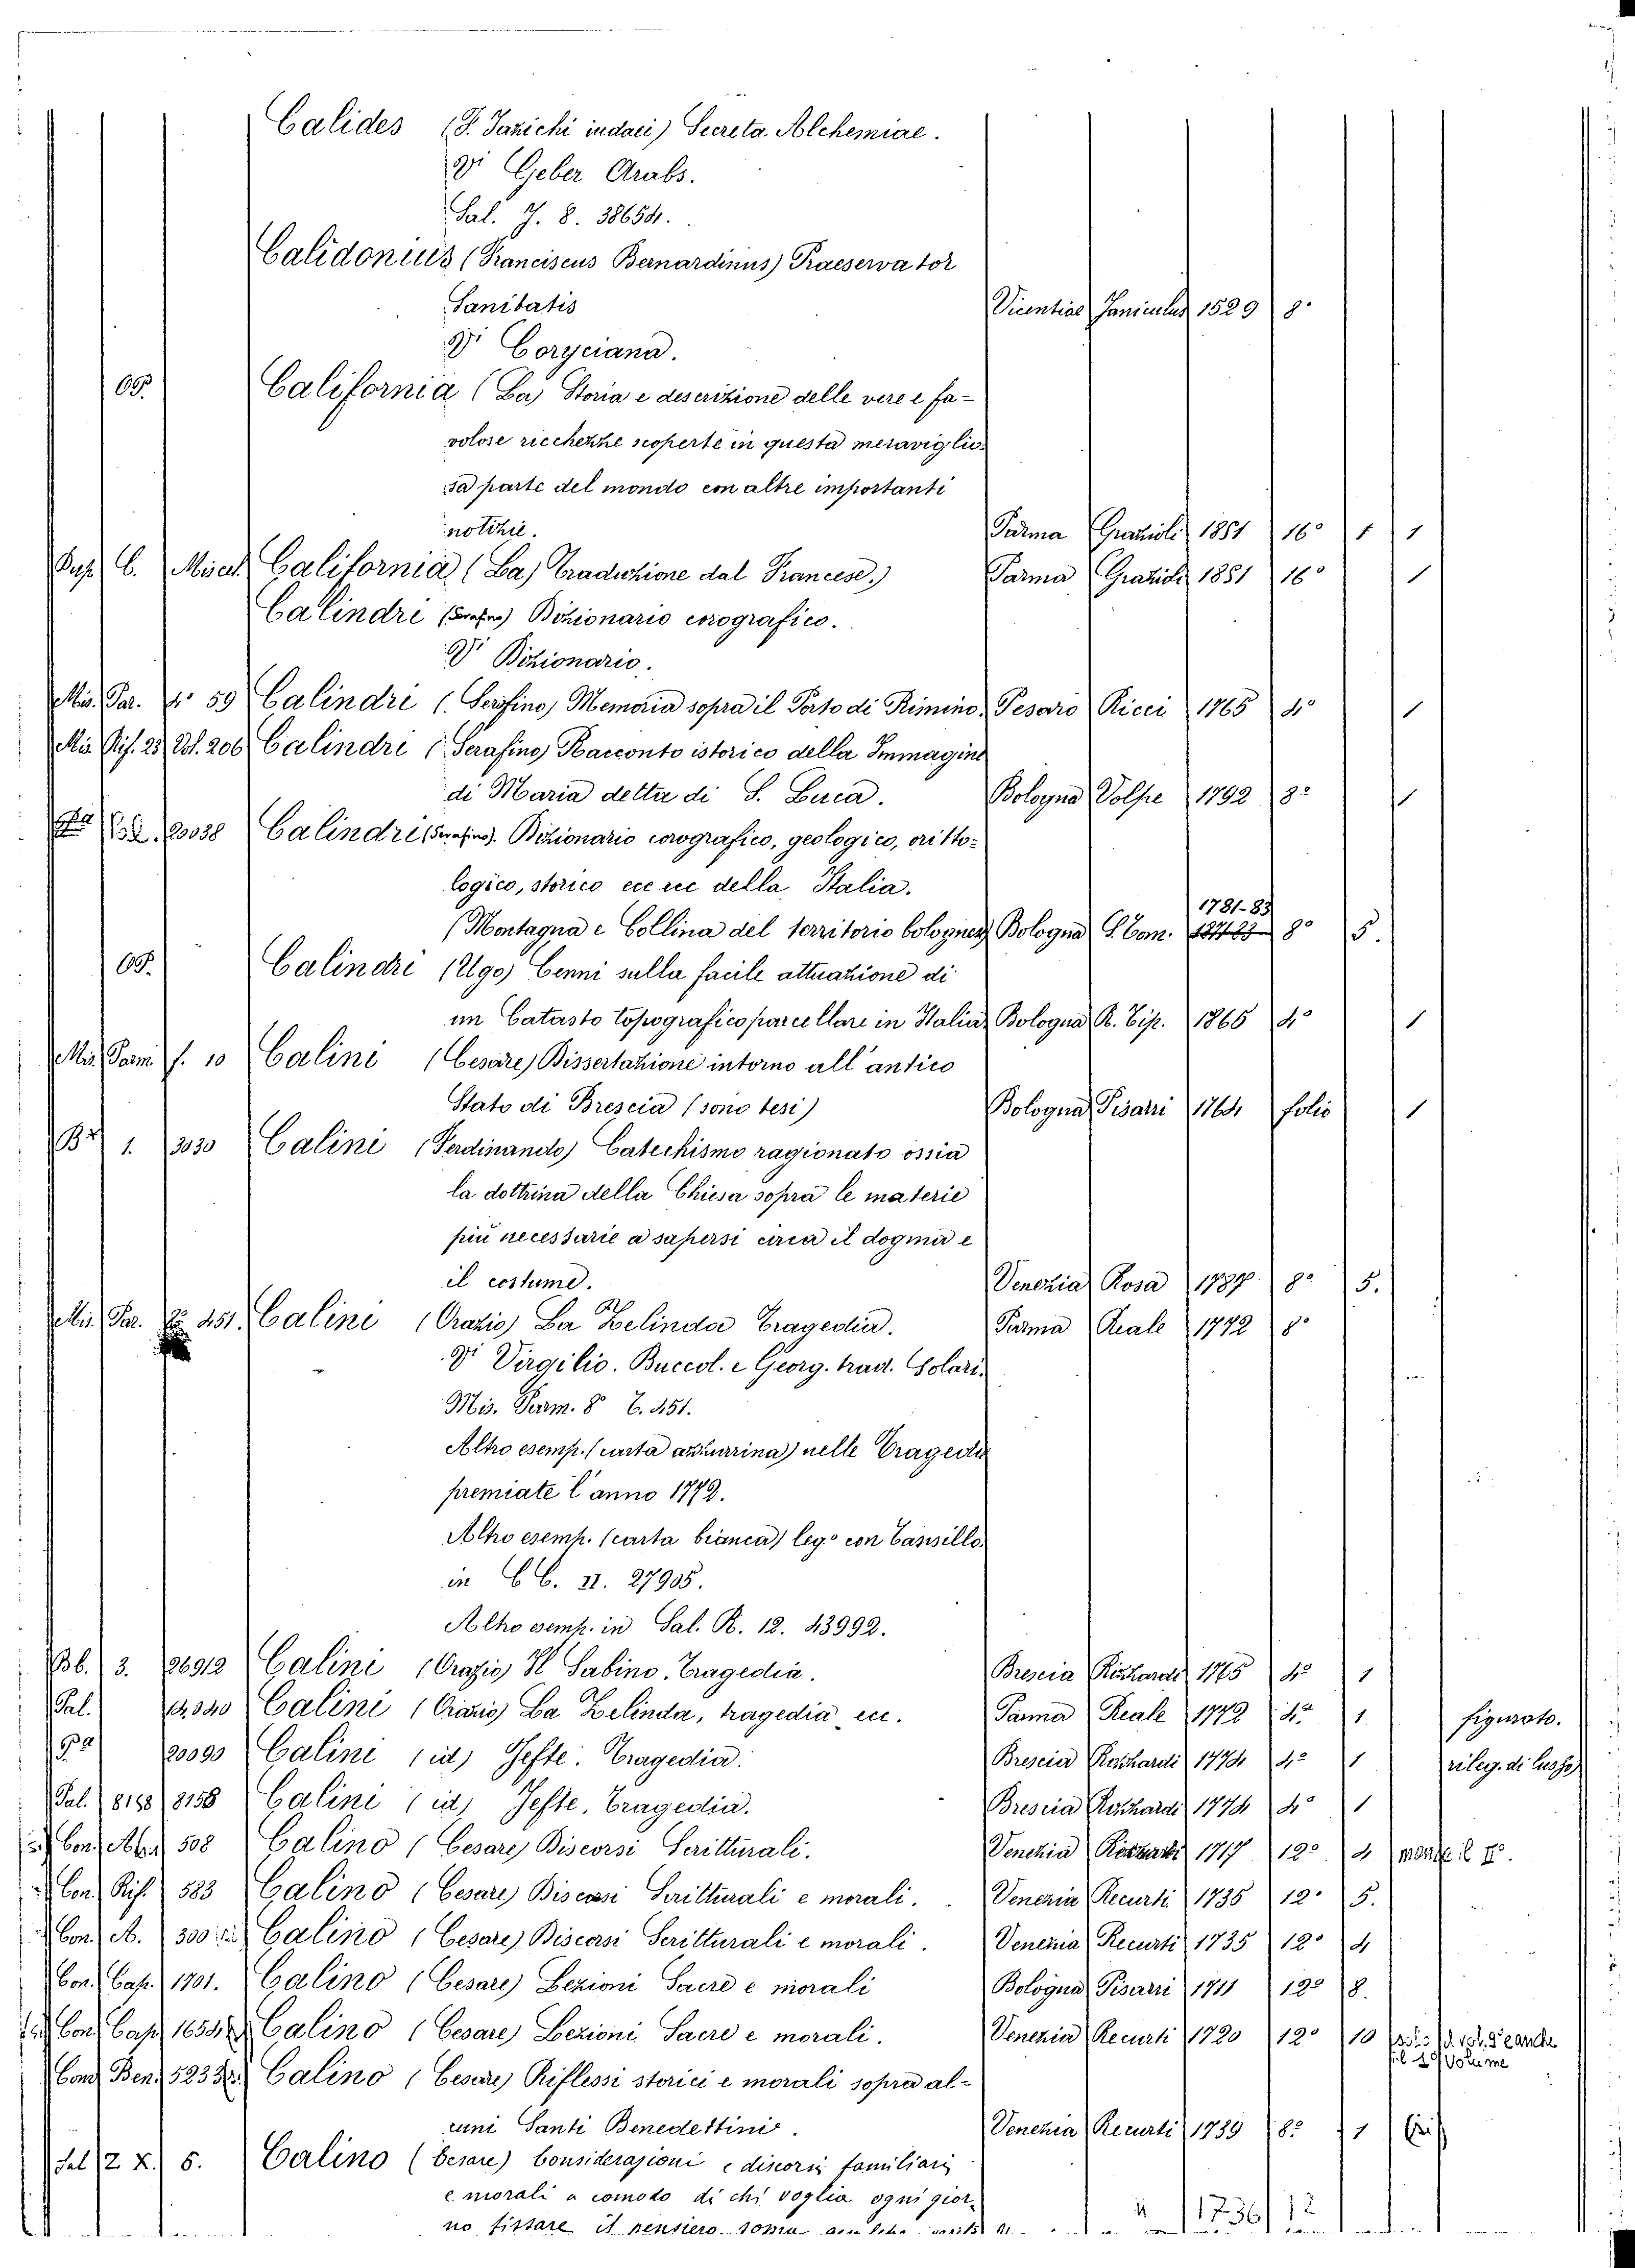 Calides (F. Jazichi iudaei) Secreta Alchemiae.
Vi Geber Arabs.
Sal. J. 8. 38654.
Calidonius (Franciscus Bernardinus) Praeservator
Sanitatis Vicentiae Janiculus 1529 8º
Vi Coryciana.
California (La) Storia e descrizione delle vere e fa-
volose ricchezze scoperte in questa meraviglio-
sa parte del mondo con altre importanti
notizie. Parma Grazioli 1851 16º 1 1
C. Miscel. California (La) Traduzione dal Francese.) Parma Grazioli 1851 16º 1
Calindri (Serafino) Dizionario corografico.
Vi Dizionario.
Mis. Par. 4º 59 Calindri (Serafino) Memoria sopra il Porto di Rimino. Pesaro Ricci 1765 4º 1
Mis. Rif. 23 Vol. 206 Calindri (Serafino) Racconto istorico della Immagine
di Maria detta di S. Luca. Bologna Volpe 1792 8º 1
20038 Calindri (Serafino). Dizionario corografico, geologico, oritto-
logico, storico ecc ecc della Italia. 1781-83
(Montagna e Collina del territorio bolognese) Bologna S. Tom. 8º 5.
Calindri (Ugo) Cenni sulla facile attuazione di
un Catasto topografico parcellare in Italia. Bologna R. Tip. 1865 4º 1
Mis. Parm. f. 10 Calini (Cesare) Dissertazione intorno all'antico
Stato di Brescia (sono tesi) Bologna Pisarri 1764 folio 1
1. 3030 Calini (Ferdinando) Catechismo ragionato ossia
la dottrina della Chiesa sopra le materie
più necessarie a sapersi circa il dogma e
il costume. Venezia Rosa 1787 8º 5.
Mis. Par. 8º 451. Calini (Orazio) La Zelinda Tragedia. Parma Reale 1772 8º
Vi Virgilio. Buccol. e Georg. trad. Solari.
Mis. Parm. 8º T. 451.
Altro esemp. (carta azzurrina) nelle Tragedie
premiate l'anno 1772.
Altro esemp. (carta bianca) legº con Cansillo.
in CC. II. 27905.
Altro esemp. in Sal. R. 12. 43992.
Bb. 3. 26912 Calini (Orazio) Il Sabino. Tragedia. Brescia Rizzardi 1765 4º 1
Pal. 14,340 Calini (Orazio) La Zelinda, tragedia ecc. Parma Reale 1772 4º 1 figurato.
20090 Calini (id) Jefte. Tragedia. Brescia Rizzardi 1774 4º 1 rileg. di lusso
Pal. 8158 8158 Calini (id) Jefte, Tragedia. Brescia Rizzardi 1774 4º 1
Con. 508 Calino (Cesare) Discorsi Scritturali. Venezia 1717 12º 4 manca il IIº.
Con. Rif. 583 Calino (Cesare) Discorsi Scritturali e morali. Venezia Recurti 1735 12º 5.
Con. A. 300 Calino (Cesare) Discorsi Scritturali e morali. Venezia Recurti 1735 12º 4
Con. Cap. 1701. Calino (Cesare) Lezioni Sacre e morali Bologna Pisarri 1711 12º 8.
Con. Cap. 1653 Calino (Cesare) Lezioni Sacre e morali. Venezia Recurti 1720 12º 10
il 1º Volume
Con. Ben. 5233 Calino (Cesare) Riflessi storici e morali sopra al-
cuni Santi Benedettini. Venezia Recurti 1739 8º 1
Sal 2 X. 5. Calino (Cesare) Considerazioni e discorsi famigliari
e morali a comodo di chi voglia ogni gior-
no fissare il pensiero sopra 1736 12